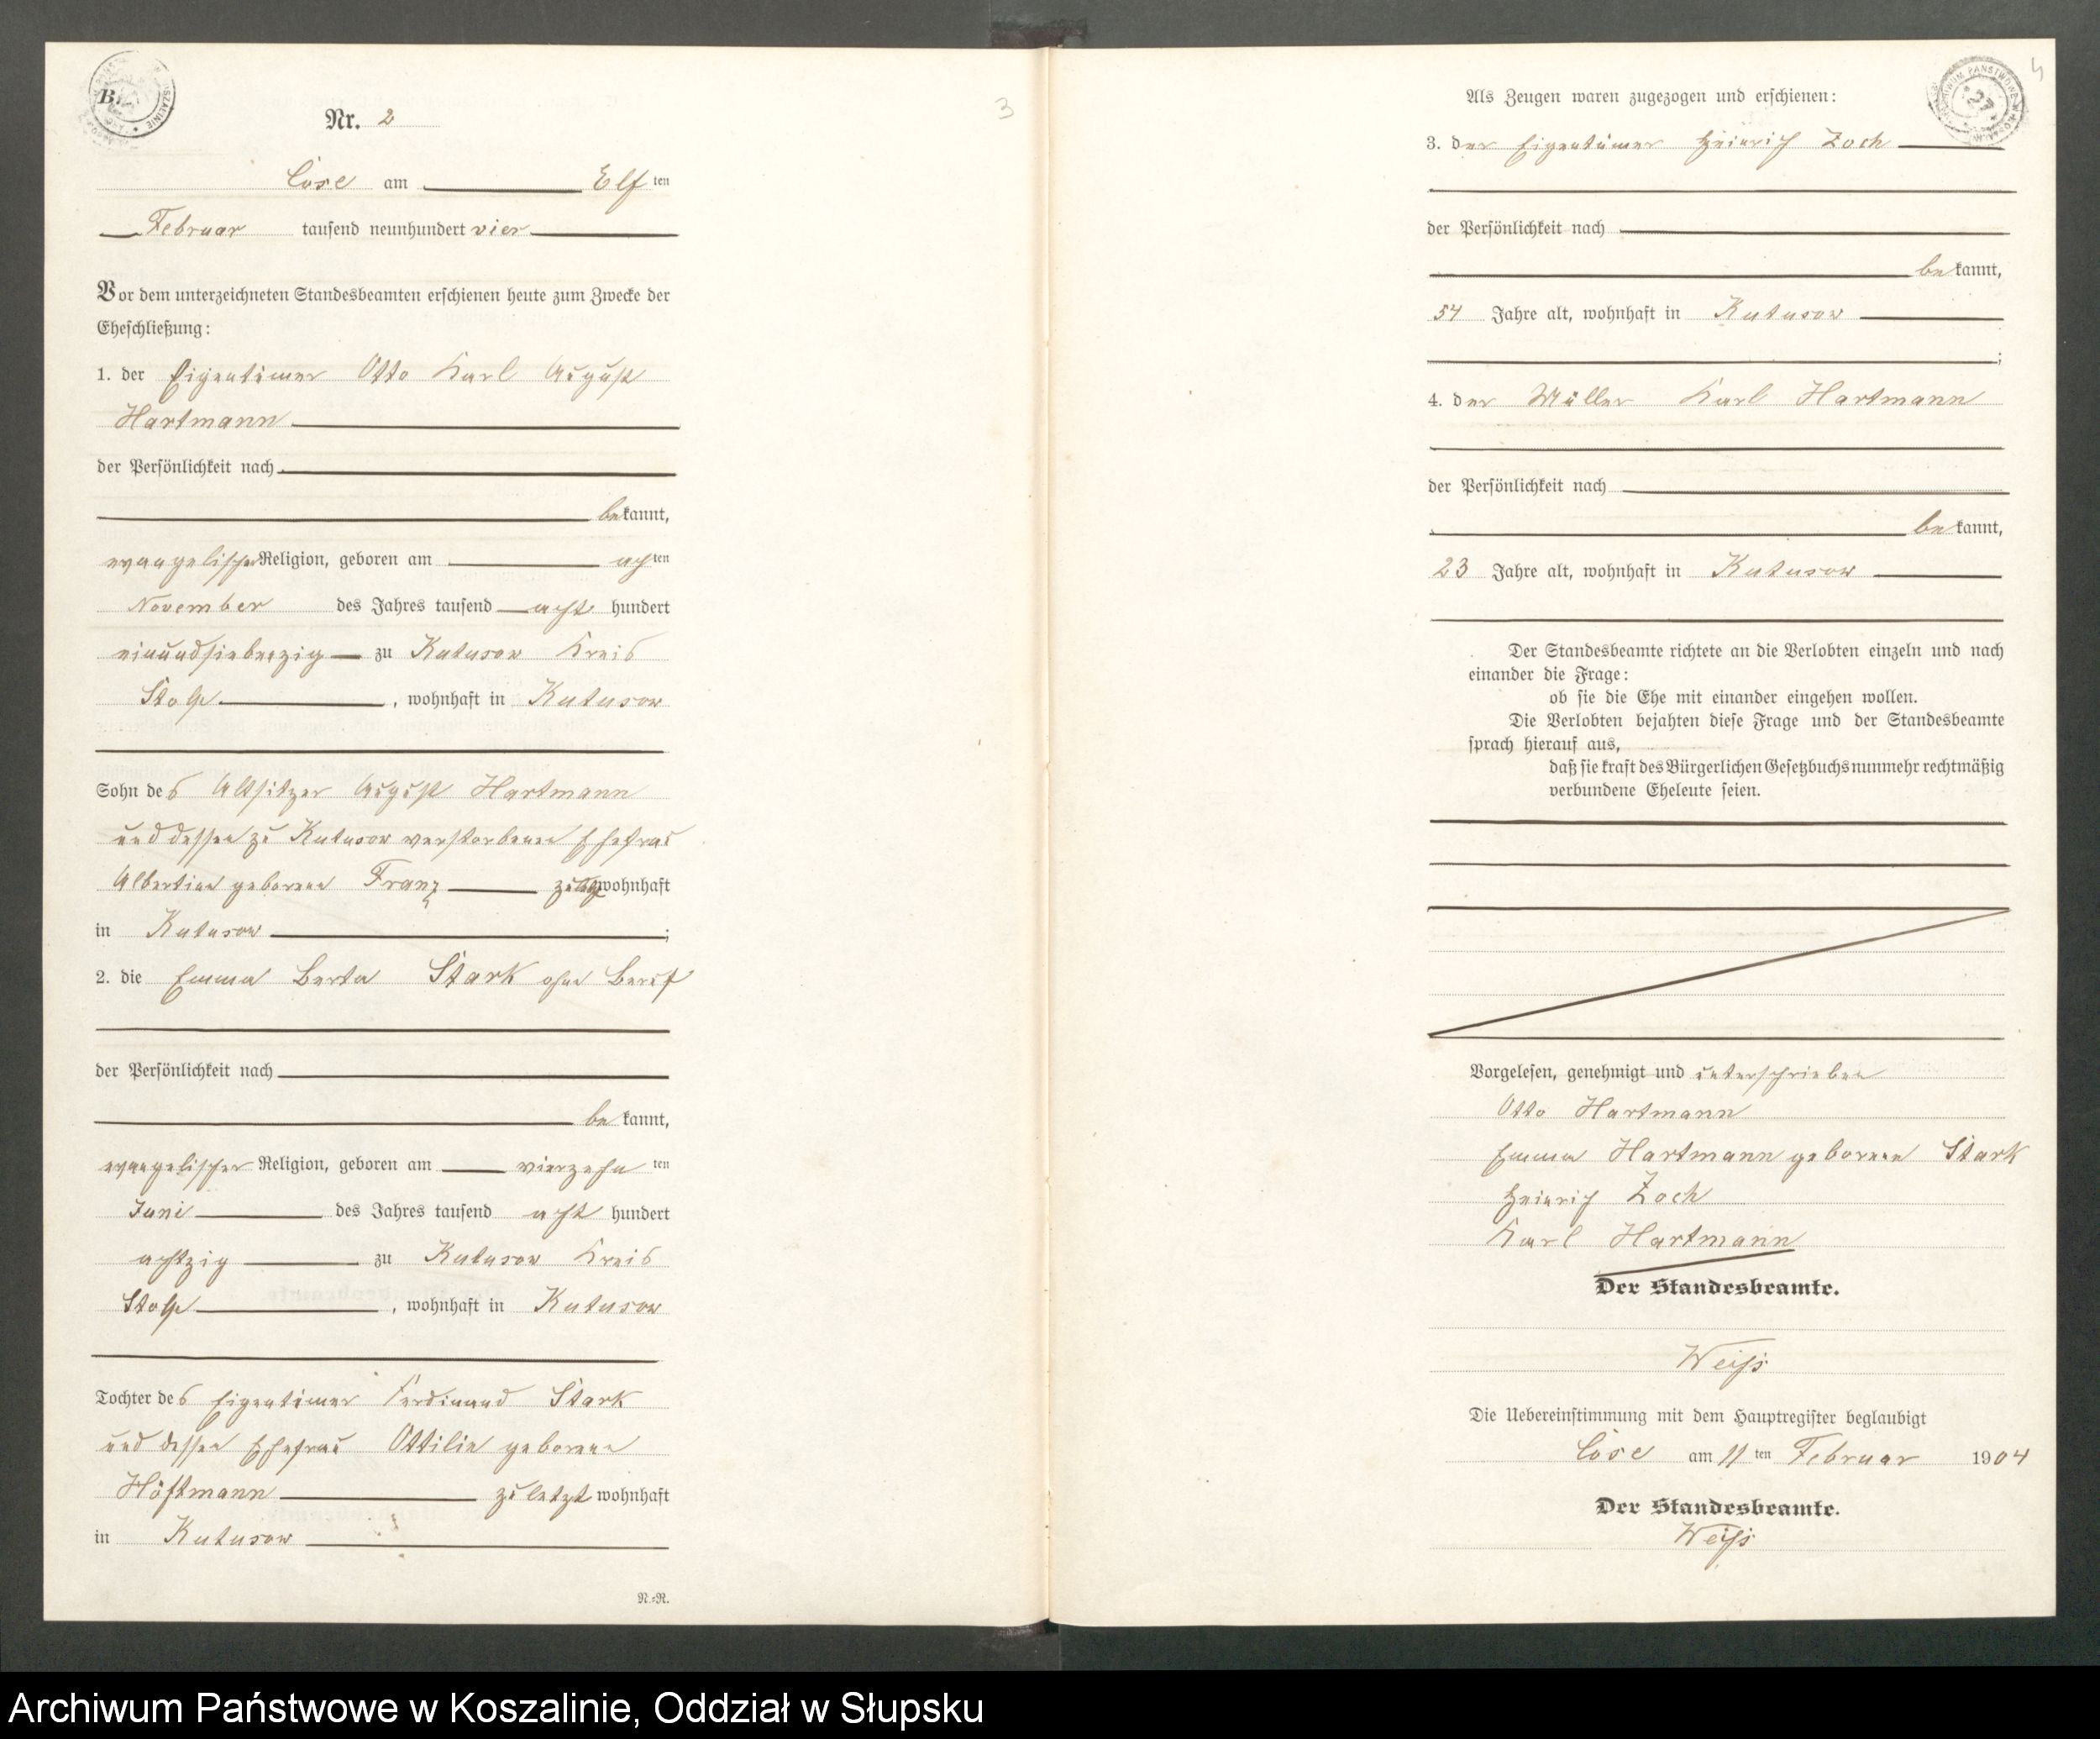 B.
Nr. 2
3
Cose am Elf ten
Februar tausend neunhundert vier
Vor dem unterzeichneten Standesbeamten erschienen heute zum Zwecke der
Eheschließung:
1. der Eigentümer Otto Karl August
Hartmann
der Persönlichkeit nach
bekannt,
evangelischer Religion, geboren am achten
November des Jahres tausend acht hundert
einundsiebenzig zu Kutusow Kreis
Stolp, wohnhaft in Kutusow
Sohn des Altsitzer August Hartmann
und dessen zu Kutusow verstorbenen Ehefrau
Albertine geborene Franz wohnhaft
in Kutusow;
2. die Emma Berta Stark ohne Beruf
der Persönlichkeit nach
bekannt,
evangelischer Religion, geboren am vierzehn ten
Juni des Jahres tausend acht hundert
achtzig zu Kutusow Kreis
Stolp, wohnhaft in Kutusow
Tochter des Eigentümer Ferdinand Stark
und dessen Ehefrau Ottilie geborene
Höftmann zuletzt wohnhaft
in Kutusow
N.=N.
4
Als Zeugen waren zugezogen und erschienen:
3. der Eigentümer Heinrich Zoch
der Persönlichkeit nach
bekannt,
54 Jahre alt, wohnhaft in Kutusow
;
4. der Müller Karl Hartmann
der Persönlichkeit nach
bekannt,
23 Jahre alt, wohnhaft in Kutusow
Der Standesbeamte richtete an die Verlobten einzeln und nach
einander die Frage:
ob sie die Ehe mit einander eingehen wollen.
Die Verlobten bejahten diese Frage und der Standesbeamte
sprach hierauf aus,
daß sie kraft des Bürgerlichen Gesetzbuchs nunmehr rechtmäßig
verbundene Eheleute seien.
Vorgelesen, genehmigt und unterschrieben
Otto Hartmann
Emma Hartmann geborene Stark
Heinrich Zoch
Karl Hartmann
Der Standesbeamte.
Weiß
Die Uebereinstimmung mit dem Hauptregister beglaubigt
Cose am 11 ten Februar 1904
Der Standesbeamte.
Weiß
Archiwum Państwowe w Koszalinie, Oddział w Słupsku